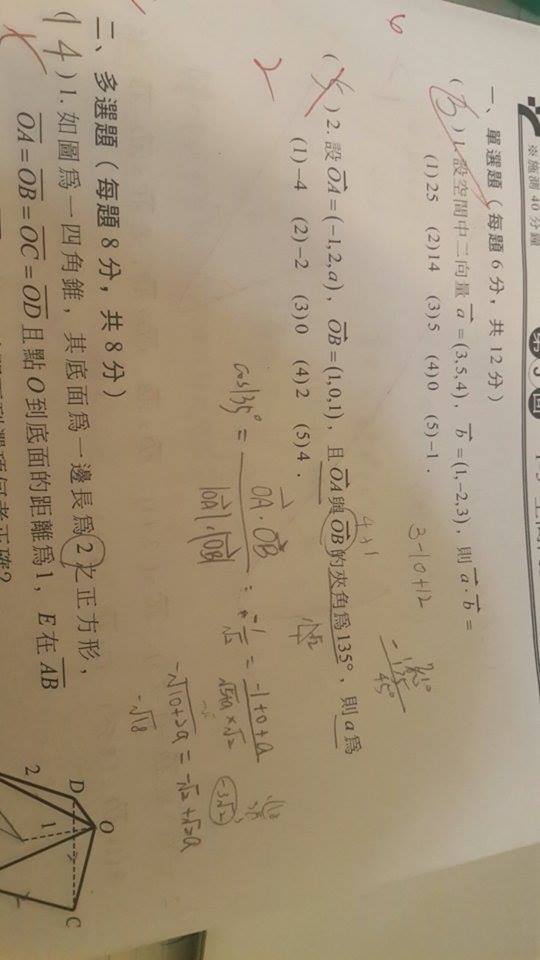 ※施測 40 分鐘
第 3 回
一、單選題（每題 6 分，共 12 分）
( 3 ) 1. 設空間中二向量 a = (3,5,4)，b = (1,−2,3)，則 a · b =
(1) 25 (2) 14 (3) 5 (4) 0 (5) −1．
3−10+12
( ) 2. 設 OA = (−1,2,a)，OB = (1,0,1)，且 OA 與 OB 的夾角為 135°，則 a 為
(1) −4 (2) −2 (3) 0 (4) 2 (5) 4．
cos135° = OA · OB / |OA| · |OB|
= −1+0+a
−3√2
−√10+2a = −√2+√2a
−√18
二、多選題（每題 8 分，共 8 分）
(14) 1. 如圖為一四角錐，其底面為一邊長為 2 之正方形，
OA = OB = OC = OD 且點 O 到底面的距離為 1，E 在 AB
O
D
C
1
2
6
2